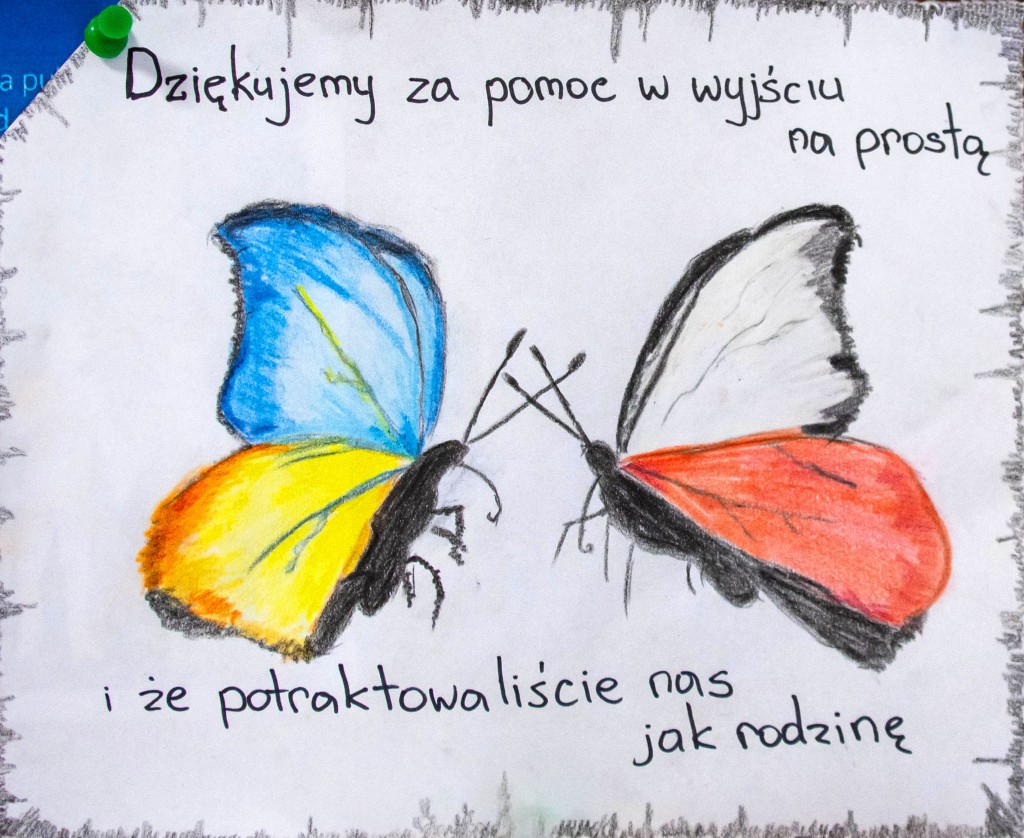 a pu
d
Dziękujemy za pomoc w wyjściu
na prostą
i że potraktowaliście nas
jak rodzinę